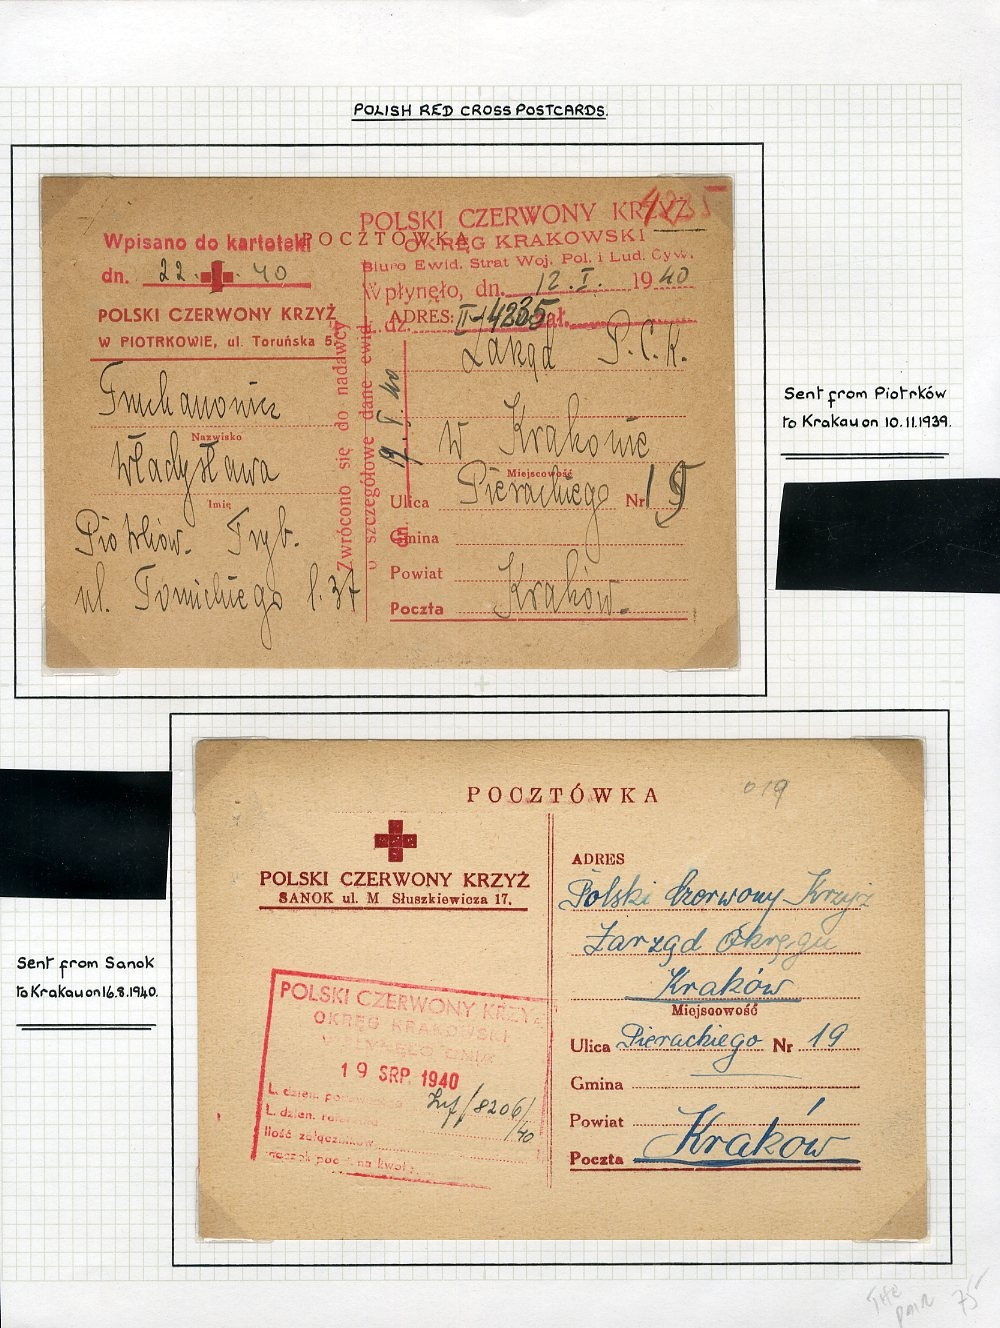 POLISH RED CROSS POSTCARDS.
POCZTÓWKA
Wpisano do kartoteki
dn. 22. I. 40
POLSKI CZERWONY KRZYŻ
W PIOTRKOWIE, ul. Toruńska 5.
Nazwisko
Władysława
Imię
Tryb.
ul.
4235
POLSKI CZERWONY KRZYŻ
OKRĘG KRAKOWSKI
Biuro Ewid. Strat Woj. Pol. i Lud. Cyw.
Wpłynęło, dn. 12. I. 1940
L. dz. II-4235 zał.
ADRES:
P. C. K.
w Krakowie
Miejscowość
Ulica Pierackiego Nr 19
Gmina
Powiat
Poczta Kraków.
Zwrócono się do nadawcy
o szczegółowe dane ewid.
Sent from Piotrków
to Krakau on 10.11.1939.
POCZTÓWKA
019
POLSKI CZERWONY KRZYŻ
SANOK ul. M Słuszkiewicza 17.
POLSKI CZERWONY KRZYŻ
OKRĘG KRAKOWSKI
WPŁYNĘŁO DNIA
19 SRP. 1940
L. dzien. podawcza
Inf/8206/40
L. dzien. referatu
Ilość załączników
znaczek poczt. na kwotę
ADRES
Polski Czerwony Krzyż
Zarząd Okręgu
Kraków
Miejscowość
Ulica Pierackiego Nr 19
Gmina
Powiat
Poczta Kraków
Sent from Sanok
to Krakau on 16.8.1940.
THE
PAIR 75